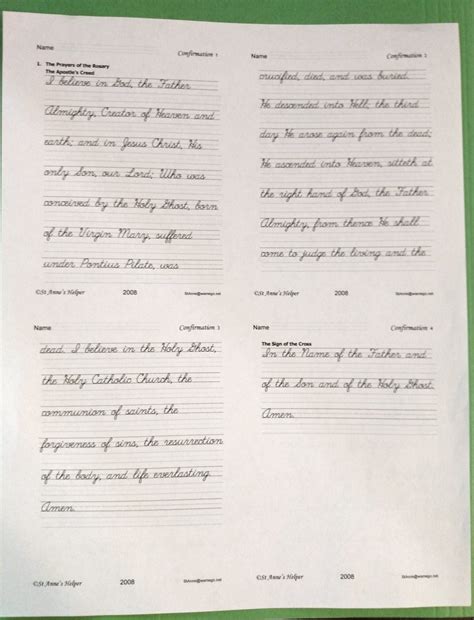 Name
Confirmation 1
1. The Prayers of the Rosary
The Apostle's Creed
I believe in God, the Father
Almighty, Creator of Heaven and
earth; and in Jesus Christ, His
only Son, our Lord; Who was
conceived by the Holy Ghost, born
of the Virgin Mary, suffered
under Pontius Pilate, was
©St Anne's Helper 2008
Name
Confirmation 2
crucified, died, and was buried.
He descended into Hell; the third
day He arose again from the dead;
He ascended into Heaven, sitteth at
the right hand of God, the Father
Almighty, from thence He shall
come to judge the living and the
©St Anne's Helper 2008
Name
Confirmation 3
dead. I believe in the Holy Ghost,
the Holy Catholic Church, the
communion of saints, the
forgiveness of sins, the resurrection
of the body, and life everlasting
Amen.
©St Anne's Helper 2008
Name
Confirmation 4
The Sign of the Cross
In the Name of the Father and
of the Son and of the Holy Ghost.
Amen.
©St Anne's Helper 2008